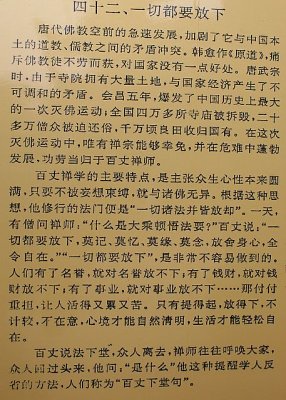 四十二、一切都要放下
唐代佛教空前的急速发展，加剧了它与中国本
土的道教、儒教之间的矛盾冲突。韩愈作《原道》，痛
斥佛教徒不劳而获，对国家没有一点好处。唐武宗
时，由于寺院拥有大量土地，与国家经济产生了不
可调和的矛盾。会昌五年，爆发了中国历史上最大
的一次灭佛运动；全国四万多所寺庙被拆毁，二十
多万僧众被迫还俗，千万顷良田收归国有。在这次
灭佛运动中，唯有禅宗能够幸免，并在危难中蓬勃
发展，功劳当归于百丈禅师。
百丈禅学的主要特点，是主张众生心性本来圆
满，只要不被妄想束缚，就与诸佛无异。根据这种思
想，他修行的法门便是“一切诸法并皆放却”。一天，
有僧问禅师：“什么是大乘顿悟法要？”百丈说：“一
切都要放下，莫记、莫忆、莫缘、莫念，放舍身心，全
令自在。”“一切都要放下”，是非常不容易做到的。
人们有了名誉，就对名誉放不下；有了钱财，就对钱
财放不下；有了事业，就对事业放不下……那付付
重担，让人活得又累又苦。只有提得起，放得下，不
计较，不在意，心境才能自然清明，生活才能轻松自
在。
百丈说法下堂，众人离去，禅师往往呼唤大家，
众人回过头来，他问：“是什么”他这种提醒学人反
省的方法，人们称为“百丈下堂句”。